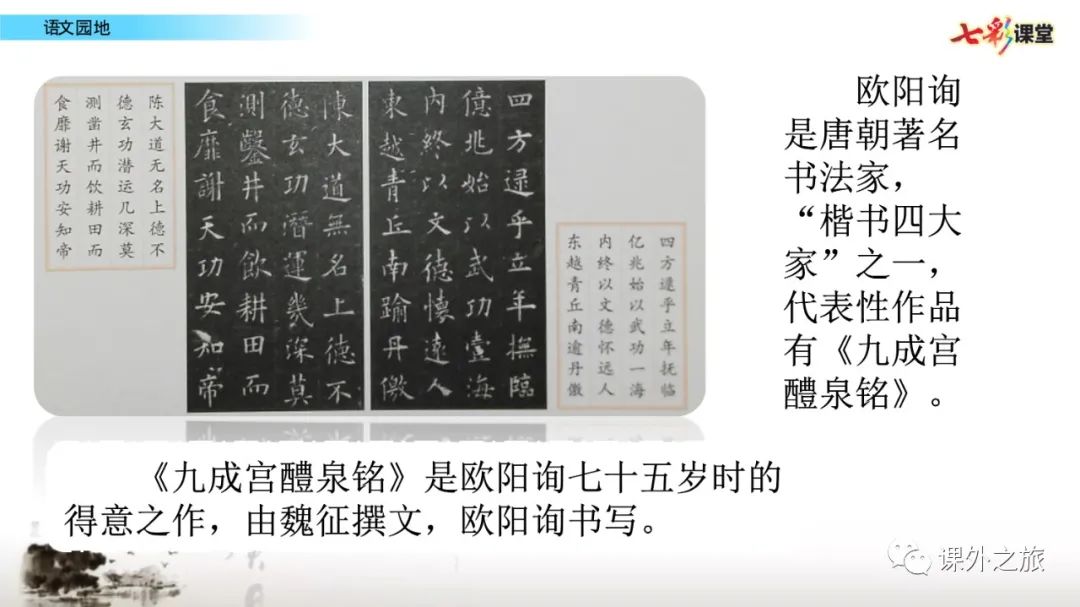 语文园地
七彩课堂
陈大道无名上德不
德玄功潜运几深莫
测凿井而饮耕田而
食靡谢天功安知帝
陳大道無名上德不
德玄功潛運幾深莫
測鑿井而飲耕田而
食靡謝天功安知帝
四方逯乎立年撫臨
億兆始以武功壹海
內終以文德懷遠人
東越青丘南踰丹儌
四方逯乎立年抚临
亿兆始以武功一海
内终以文德怀远人
东越青丘南逾丹儌
欧阳询
是唐朝著名
书法家，
“楷书四大
家”之一，
代表性作品
有《九成宫
醴泉铭》。
《九成宫醴泉铭》是欧阳询七十五岁时的
得意之作，由魏征撰文，欧阳询书写。
课外之旅